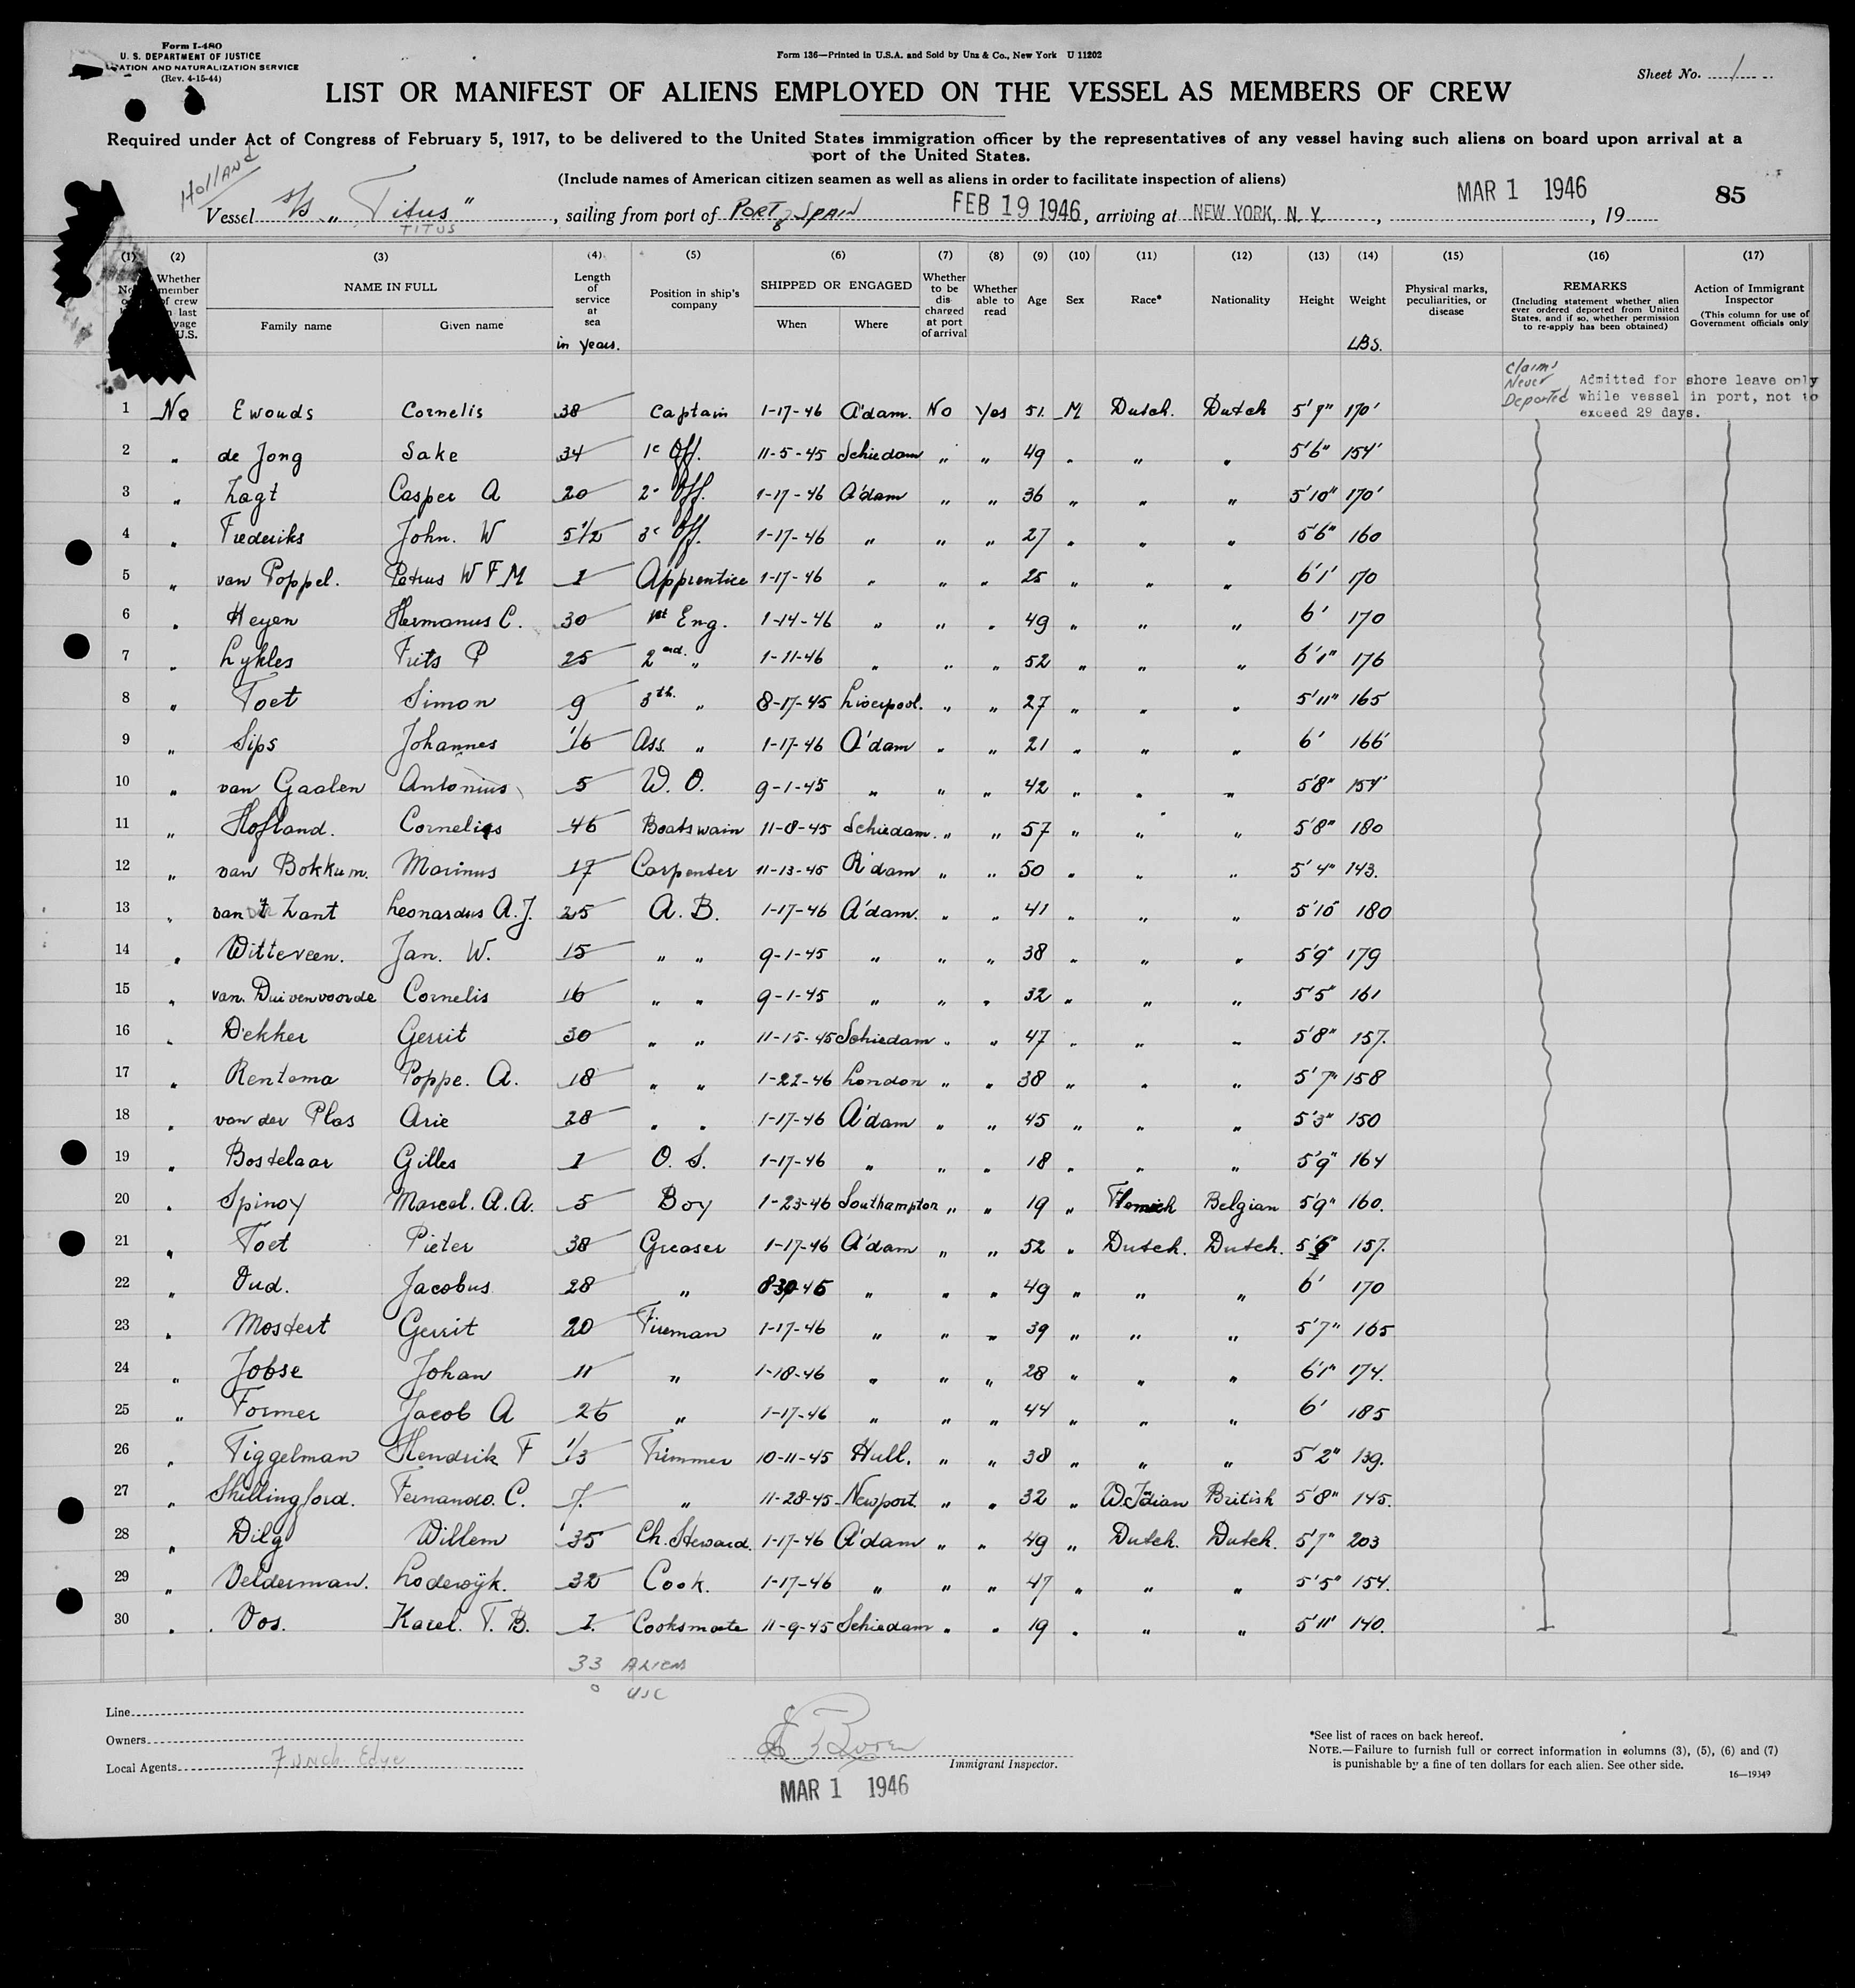 Form I-480
U. S. DEPARTMENT OF JUSTICE
ATION AND NATURALIZATION SERVICE
(Rev. 4-15-44)
Form 136—Printed in U.S.A. and Sold by Unz & Co., New York U 11202
Sheet No. 1
LIST OR MANIFEST OF ALIENS EMPLOYED ON THE VESSEL AS MEMBERS OF CREW
Required under Act of Congress of February 5, 1917, to be delivered to the United States immigration officer by the representatives of any vessel having such aliens on board upon arrival at a
port of the United States.
(Include names of American citizen seamen as well as aliens in order to facilitate inspection of aliens)
Holland
Vessel s/s "Titus", sailing from port of PORT of SPAIN FEB 19 1946, arriving at NEW YORK, N. Y., MAR 1 1946, 19 85
TITUS
(1) (2) (3) (4) (5) (6) (7) (8) (9) (10) (11) (12) (13) (14) (15) (16) (17)
Whether member of crew last U.S. NAME IN FULL Family name Given name Length of service at sea in years. Position in ship's company SHIPPED OR ENGAGED When Where Whether to be discharged at port of arrival Whether able to read Age Sex Race* Nationality Height Weight LBS. Physical marks, peculiarities, or disease REMARKS (Including statement whether alien ever ordered deported from United States, and if so, whether permission to re-apply has been obtained) Action of Immigrant Inspector (This column for use of Government officials only
Claims Never Deported Admitted for shore leave only while vessel in port, not to exceed 29 days.
1 No Ewouds Cornelis 38 Captain 1-17-46 A'dam. No Yes 51. M Dutch. Dutch 5'7" 170'
2 " de Jong Sake 34 1e Off. 11-5-45 Schiedam " " 49 " " " 5'6" 154'
3 " Zagt Casper A 20 2e Off. 1-17-46 A'dam " " 36 " " " 5'10" 170'
4 " Frederiks John. W 5 1/2 3e Off. 1-17-46 " " " 27 " " " 5'6" 160
5 " van Poppel. Petrus W F M 1 Apprentice 1-17-46 " " " 25 " " " 6'1' 170
6 " Heyen Hermanus C. 30 1st Eng. 1-14-46 " " " 49 " " " 6' 170
7 " Lykles Frits P 25 2nd. " 1-11-46 " " " 52 " " " 6'1" 176
8 " Toet Simon 9 3th. " 8-17-45 Liverpool. " " 27 " " " 5'11" 165
9 " Sips Johannes 1/6 Ass. " 1-17-46 A'dam " " 21 " " " 6' 166'
10 " van Gaalen Antonius 5 W. O. 9-1-45 " " " 42 " " " 5'8" 154'
11 " Hofland. Cornelis 46 Boatswain 11-8-45 Schiedam. " " 57 " " " 5'8" 180
12 " van Bokkum. Marinus 17 Carpenter 11-13-45 R'dam " " 50 " " " 5'4" 143.
13 " van 't Zant Leonardus A.J. 25 A. B. 1-17-46 A'dam. " " 41 " " " 5'10" 180
14 " Witteveen. Jan. W. 15 " " 9-1-45 " " " 38 " " " 5'9" 179
15 " van. Duivenvoorde Cornelis 16 " " 9-1-45 " " " 32 " " " 5'5" 161
16 " Dekker Gerrit 30 " " 11-15-45 Schiedam " " 47 " " " 5'8" 157.
17 " Rentema Poppe. A. 18 " " 1-22-46 London " " 38 " " " 5'7" 158
18 " van der Plas Arie 28 " " 1-17-46 A'dam " " 45 " " " 5'3" 150
19 " Bostelaar Gilles 1 O. S. 1-17-46 " " " 18 " " " 5'9" 164
20 " Spinoy Marcel. A.A. 5 Boy 1-23-46 Southampton " " 19 " Flemish Belgian 5'9" 160.
21 " Toet Pieter 38 Greaser 1-17-46 A'dam " " 52 " Dutch. Dutch. 5'6" 157.
22 " Oud. Jacobus 28 " 8-30-45 " " " 49 " " " 6' 170
23 " Mostert Gerrit 20 Fireman 1-17-46 " " " 39 " " " 5'7" 165
24 " Jobse Johan 11 " 1-18-46 " " " 28 " " " 6'1" 174.
25 " Former Jacob A 26 " 1-17-46 " " " 44 " " " 6' 185
26 " Tiggelman Hendrik F 1/3 Trimmer 10-11-45 Hull. " " 38 " " " 5'2" 139.
27 " Shillingford. Fernando. C. 7. " 11-28-45 Newport. " " 32 " W Idian British 5'8" 145.
28 " Dilg Willem 35 Ch. Steward. 1-17-46 A'dam " " 49 " Dutch. Dutch. 5'7" 203
29 " Velderman. Lodewijk. 32 Cook. 1-17-46 " " " 47 " " " 5'5" 154.
30 " Vos. Karel. T. B. 1. Cooksmate 11-9-45 Schiedam " " 19 " " " 5'11' 140.
33 ALIENS
0 USC
Line
Owners
Local Agents Funch Edye
Immigrant Inspector.
MAR 1 1946
*See list of races on back hereof.
NOTE.—Failure to furnish full or correct information in columns (3), (5), (6) and (7)
is punishable by a fine of ten dollars for each alien. See other side.
16—19349